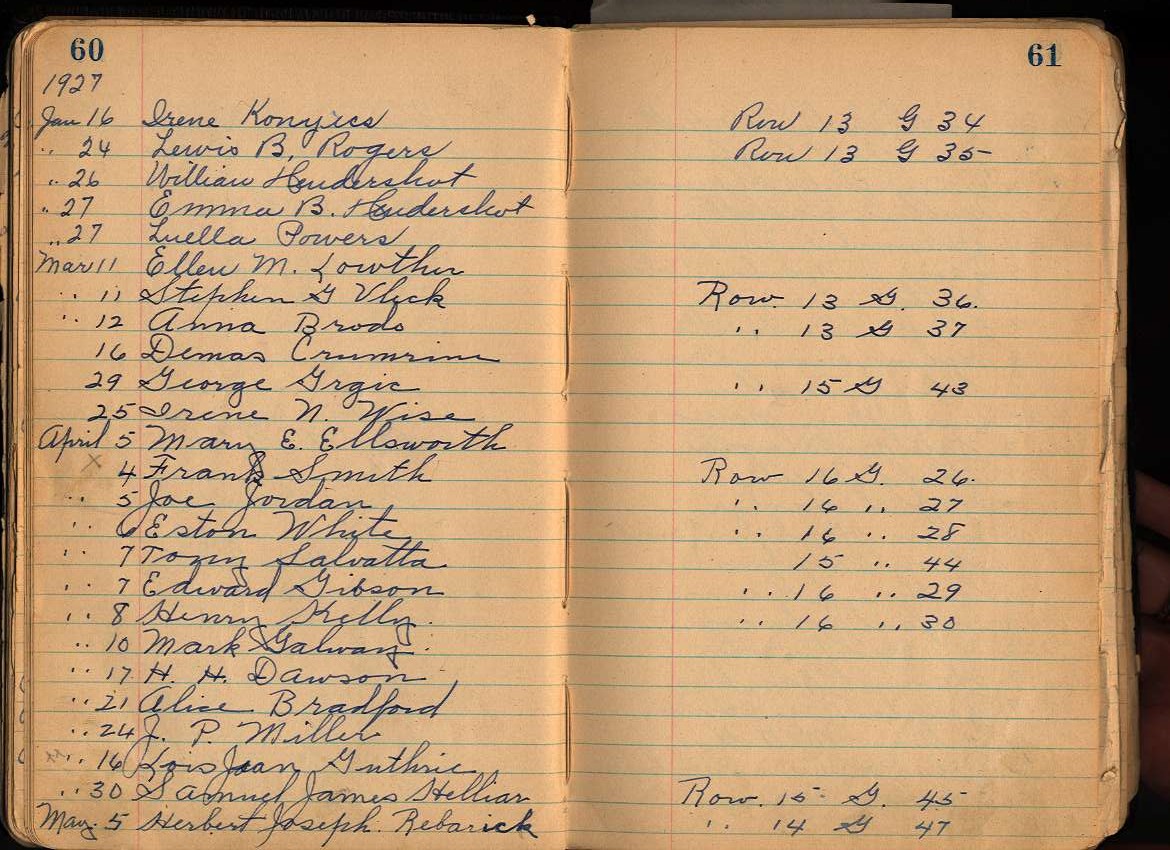 60 61
1927
Jan 16 Irene Konyics Row 13 G 34
.. 24 Lewis B. Rogers Row 13 G 35
.. 26 William Hendershot
.. 27 Emma B. Hendershot
.. 27 Luella Powers
Mar 11 Ellen M. Lowther
.. 11 Stephen G Vlick Row 13 G. 36.
.. 12 Anna Brodo .. 13 G 37
16 Demas Crumrine
29 George Grgic .. 15 G 43
25 Irene N. Wise
April 5 Mary E. Ellsworth
4 Frank Smith Row 16 G. 26.
.. 5 Joe Jordan .. 16 .. 27
.. 6 Eston White .. 16 .. 28
.. 7 Tony Salvatta 15 .. 44
.. 7 Edward Gibson .. 16 .. 29
.. 8 Henry Kelly. .. 16 .. 30
.. 10 Mark Galway.
.. 17 H. H. Dawson
.. 21 Alice Bradford
.. 24 J. P. Miller
.. 16 Lois Jean Guthrie
.. 30 Samuel James Helliar Row. 15 G. 45
May. 5 Herbert Joseph. Rebarick .. 14 G 47